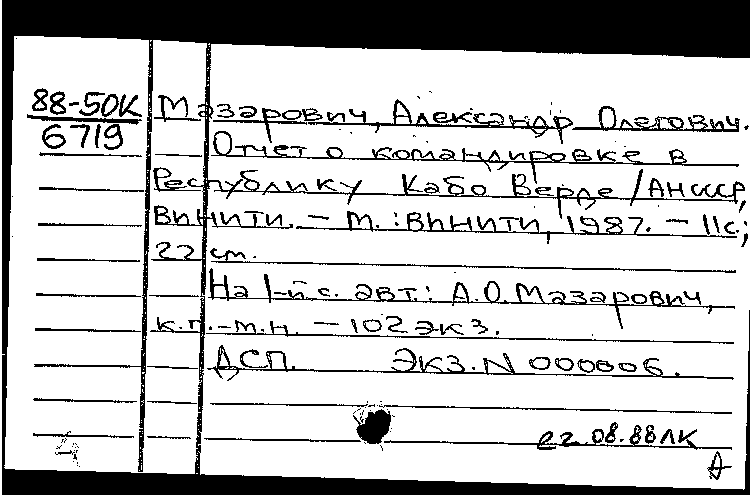 88-50К
6719
Мазарович, Александр Олегович.
Отчет о командировке в
Республику Кабо Верде / АН СССР,
ВИНИТИ. – М. : ВИНИТИ, 1987. – 11 с.;
22 см.
На 1-й с. авт.: А.О. Мазарович,
к.г.-м.н. – 102 экз.
ДСП. Экз. N 000006.
22.08.88 ЛК
4